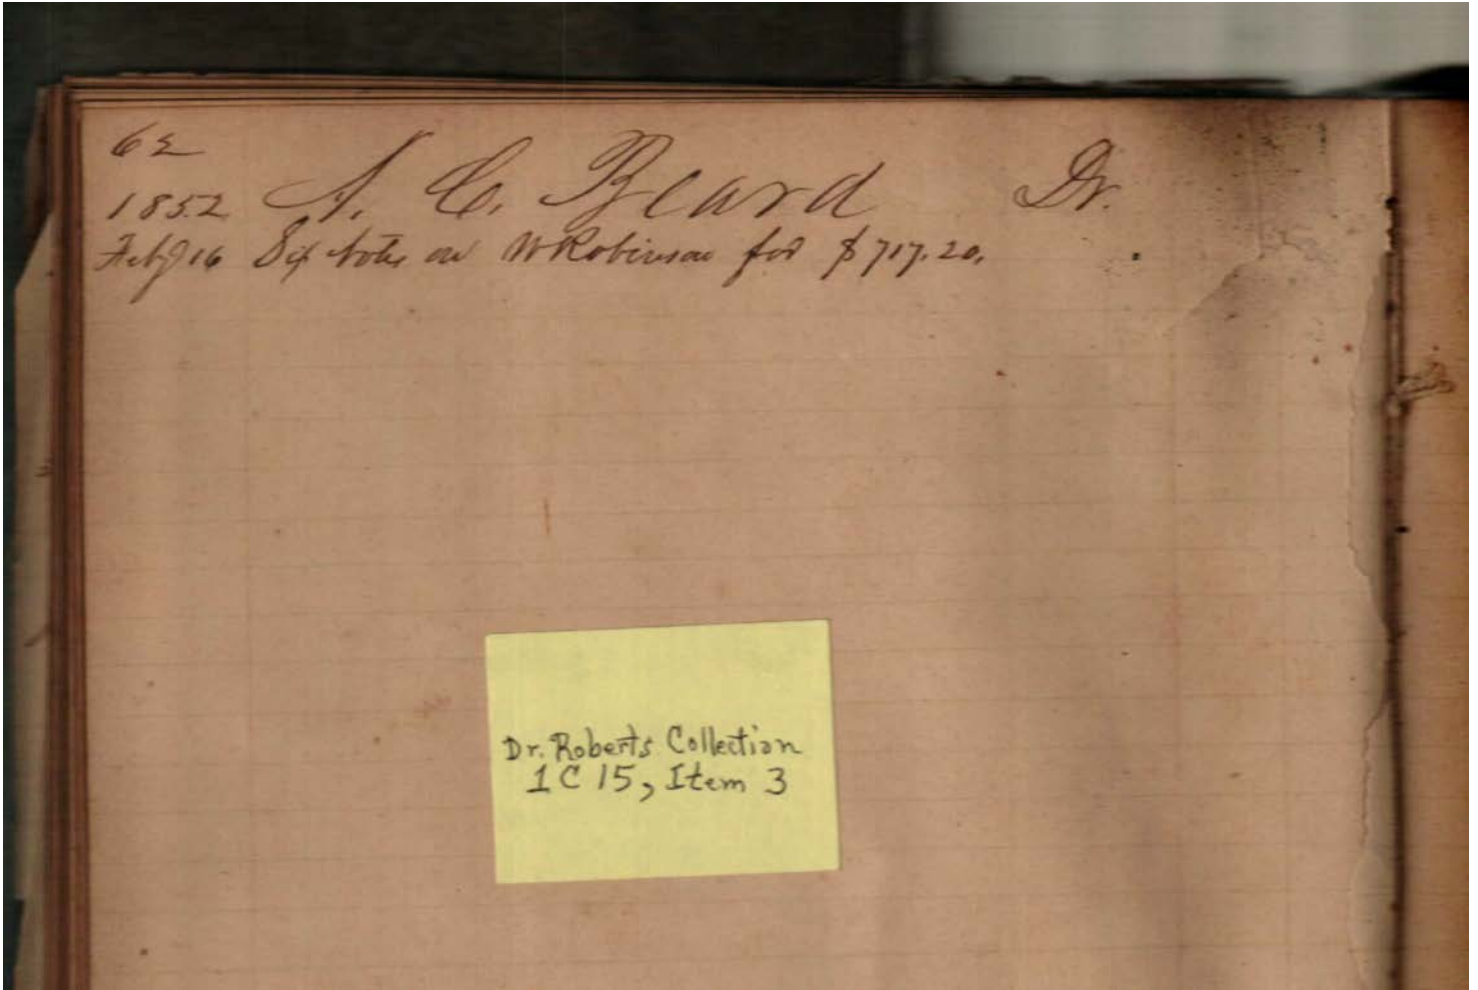 62
1852 A. C. Beard Dr.
Feby 16 Six Notes on W Robinson for $717.20.
Dr. Roberts Collection
1C15, Item 3